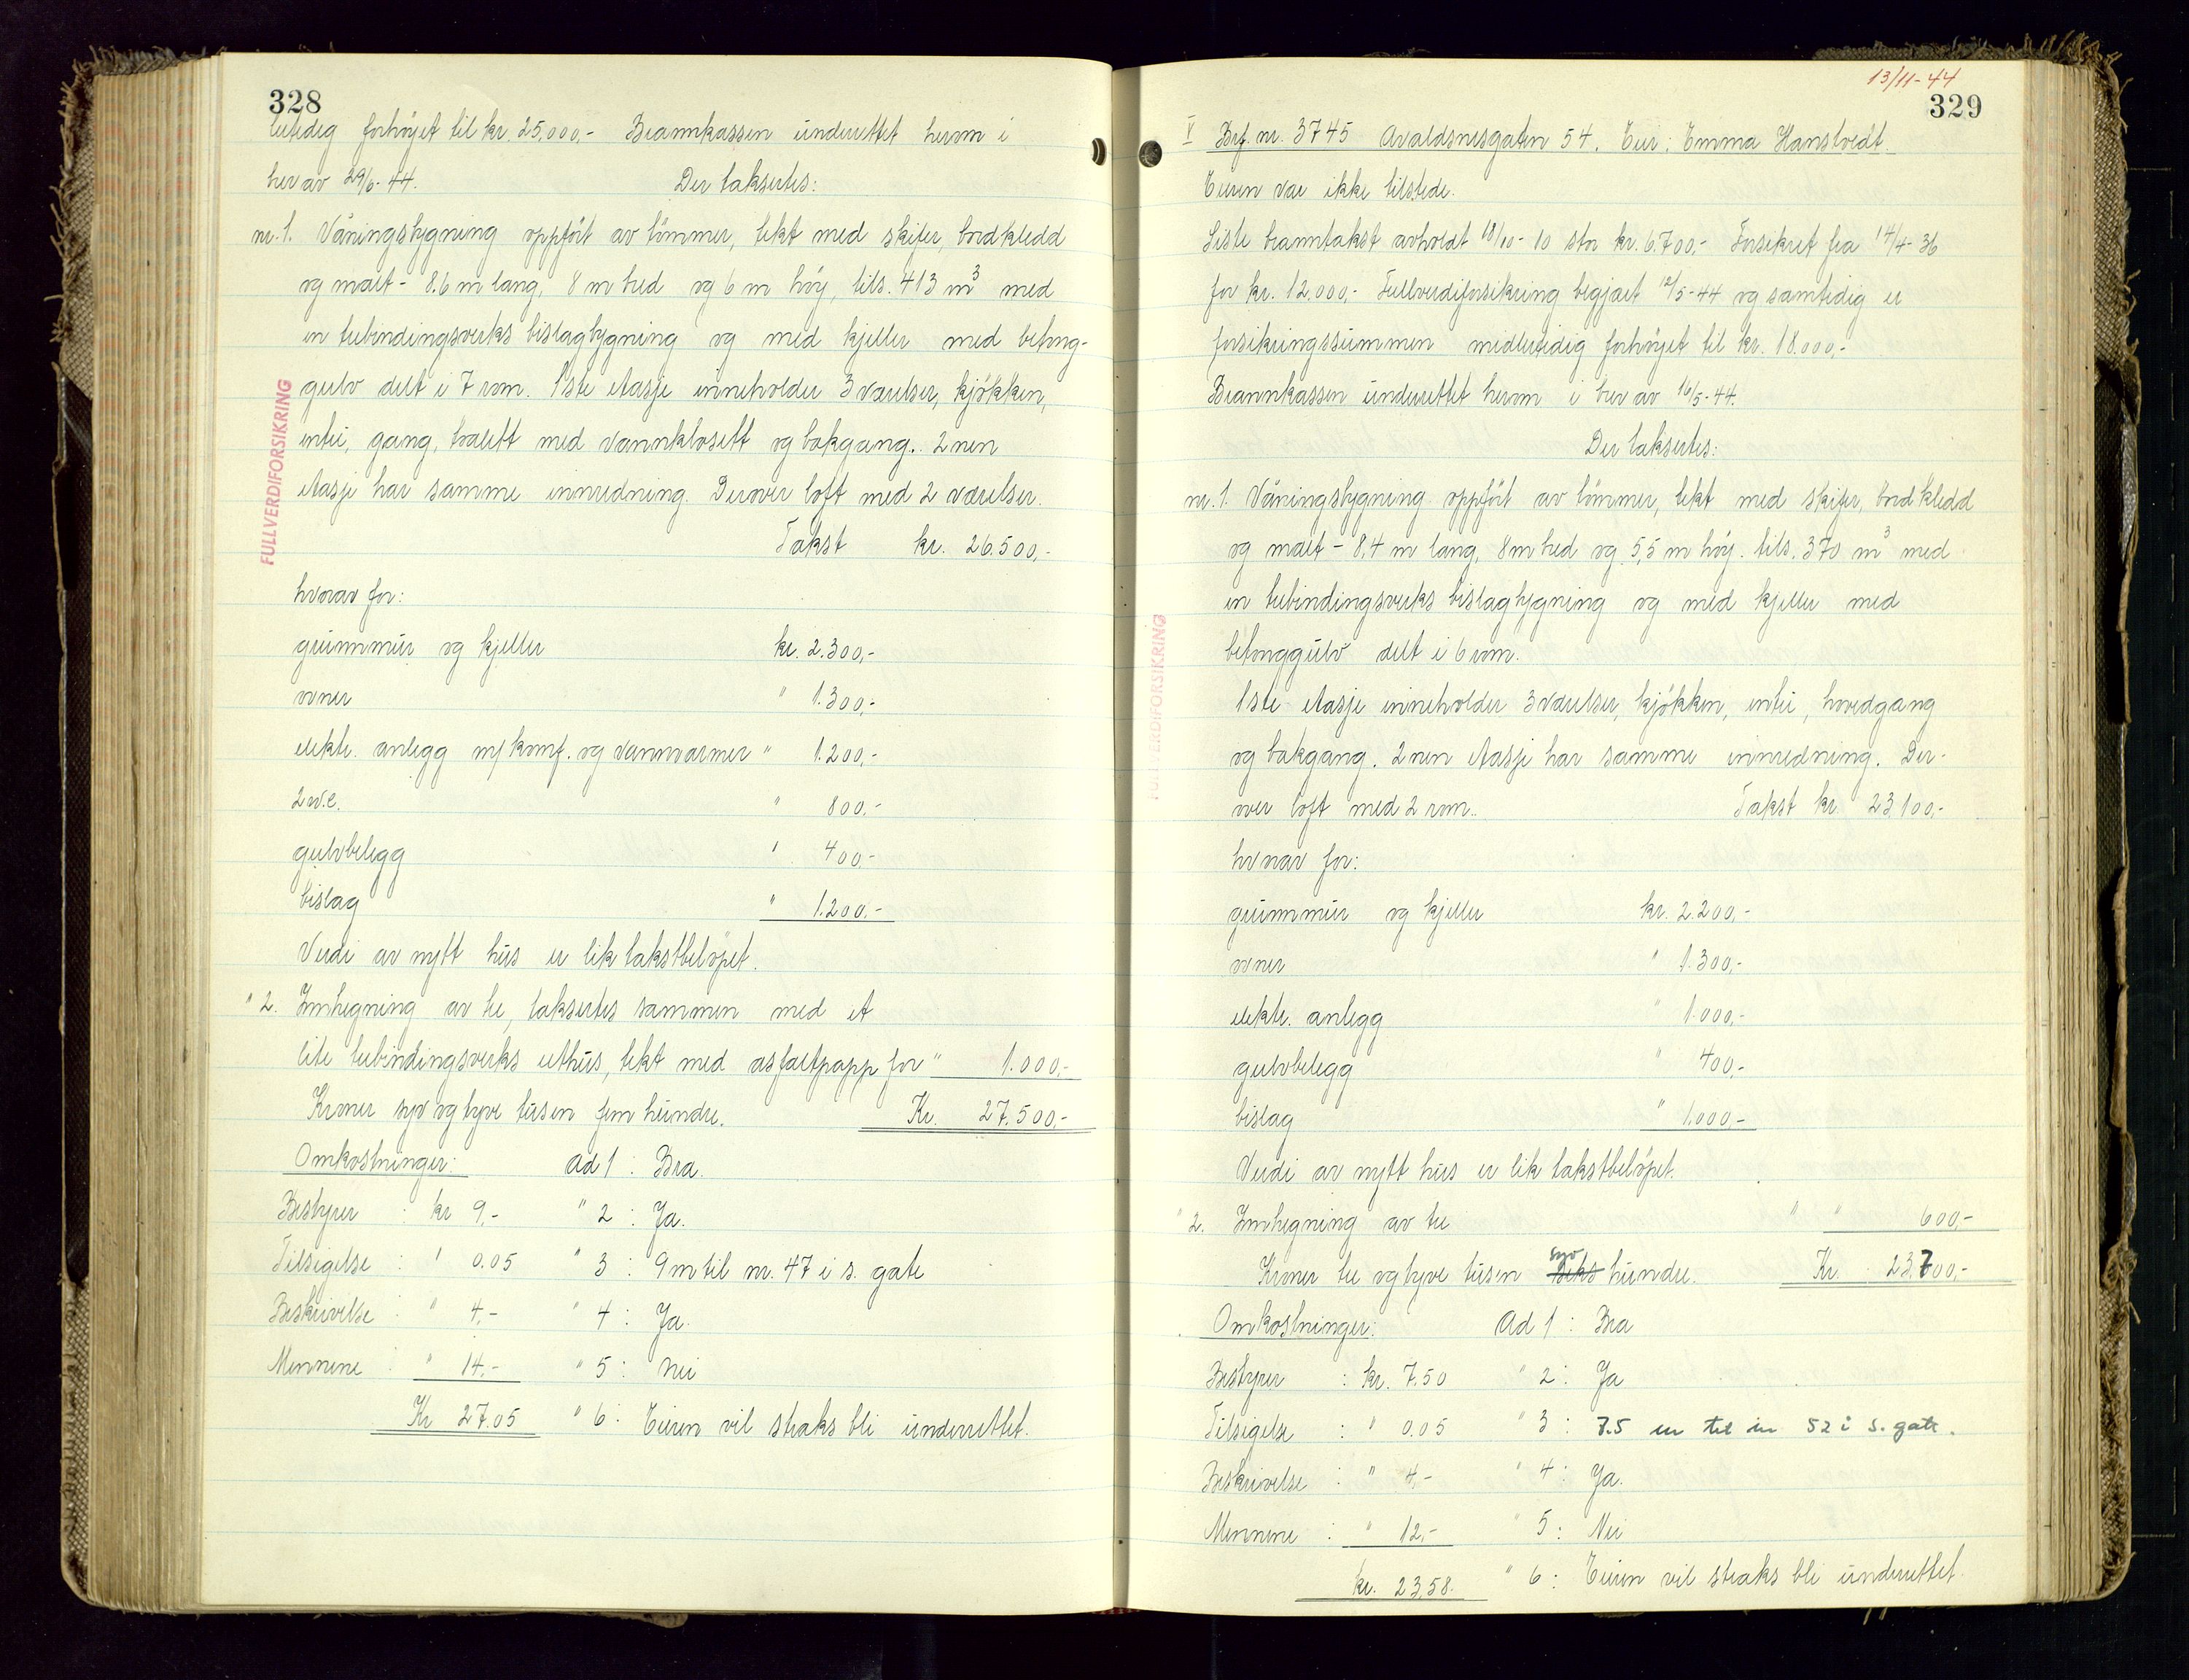 328
lertidig forhöyet til kr. 25.000,- Brannkassen underrettet herom i
brev av 29/6-44. Der taksertes:
nr. 1. Våningsbygning oppfört av tömmer, tekt med skifer, bordkledd
og malt - 8.6 m lang, 8 m bred og 6 m höy, tils. 413 m³ med
en trebindingsverks bislagbygning og med kjeller med betong-
gulv delt i 7 rom. 1ste etasje inneholder 3 værelser, kjökken,
entré, gang, toalett med vannklosett og bakgang. 2nen
etasje har samme innredning. Derover loft med 2 værelser.
Takst kr. 26.500,-
hvorav for:
grunnmur og kjeller kr. 2.300,-
ovner " 1.300,-
elektr. anlegg m/ komf. og vannvarmer " 1.200,-
2 w.c. " 800,-
gulvbelegg " 400,-
bislag " 1.200,-
Verdi av nytt hus er lik takstbelöpet.
" 2. Innhegning av tre, taksertes sammen med et
lite trebindingsverks uthus, tekt med asfaltpapp for " 1.000,-
Kroner syv og tyve tusen fem hundre. Kr. 27.500,-
Omkostninger: Ad 1 : Bra.
Bestyrer : kr 9,- " 2 : Ja.
Tilsigelse : " 0.05 " 3 : 9 m til nr. 47 i s. gate
Beskrivelse : " 4,- " 4 : Ja.
Mennene : " 14,- " 5 : Nei
Kr 27.05 " 6 : Eieren vil straks bli underrettet.
FULLVERDIFORSIKRING
13/11-44
329
V Brf. nr. 3745 Avaldsnesgaten 54. Eier: Emma Hanstvedt.
Eieren var ikke tilstede.
Siste branntakst avholdt 18/10-10 stor kr. 6.700,- Forsikret fra 14/4-36
for kr. 12.000,- Fullverdiforsikring begjært 12/5-44 og samtidig er
forsikringssummen midlertidig forhöyet til kr. 18.000,-
Brannkassen underrettet herom i brev av 16/5-44.
Der taksertes:
nr. 1. Våningsbygning oppfört av tömmer, tekt med skifer, bordkledd
og malt - 8,4 m lang, 8 m bred og 5,5 m höy. tils. 370 m³ med
en trebindingsverks bislagbygning og med kjeller med
betonggulv delt i 6 rom.
1ste etasje inneholder 3 værelser, kjökken, entré, hovedgang
og bakgang. 2nen etasje har samme innredning. Der-
over loft med 2 rom. Takst kr. 23.100,-
hvorav for:
grunnmur og kjeller kr. 2.200,-
ovner " 1.300,-
elektr. anlegg " 1.000,-
gulvbelegg " 400,-
bislag " 1.000,-
Verdi av nytt hus er lik takstbelöpet.
" 2. Innhegning av tre " " 600,-
syv
Kroner tre og tyve tusen seks hundre. Kr. 23.700,-
Omkostninger: Ad 1 : Bra
Bestyrer : kr. 7.50 " 2 : Ja
Tilsigelse : " 0.05 " 3 : 7.5 m til nr 52 i s. gate.
Beskrivelse : " 4,- " 4 : Ja.
Mennene : " 12,- " 5 : Nei
kr. 23.58. " 6 : Eieren vil straks bli underrettet.
FULLVERDIFORSIKRING